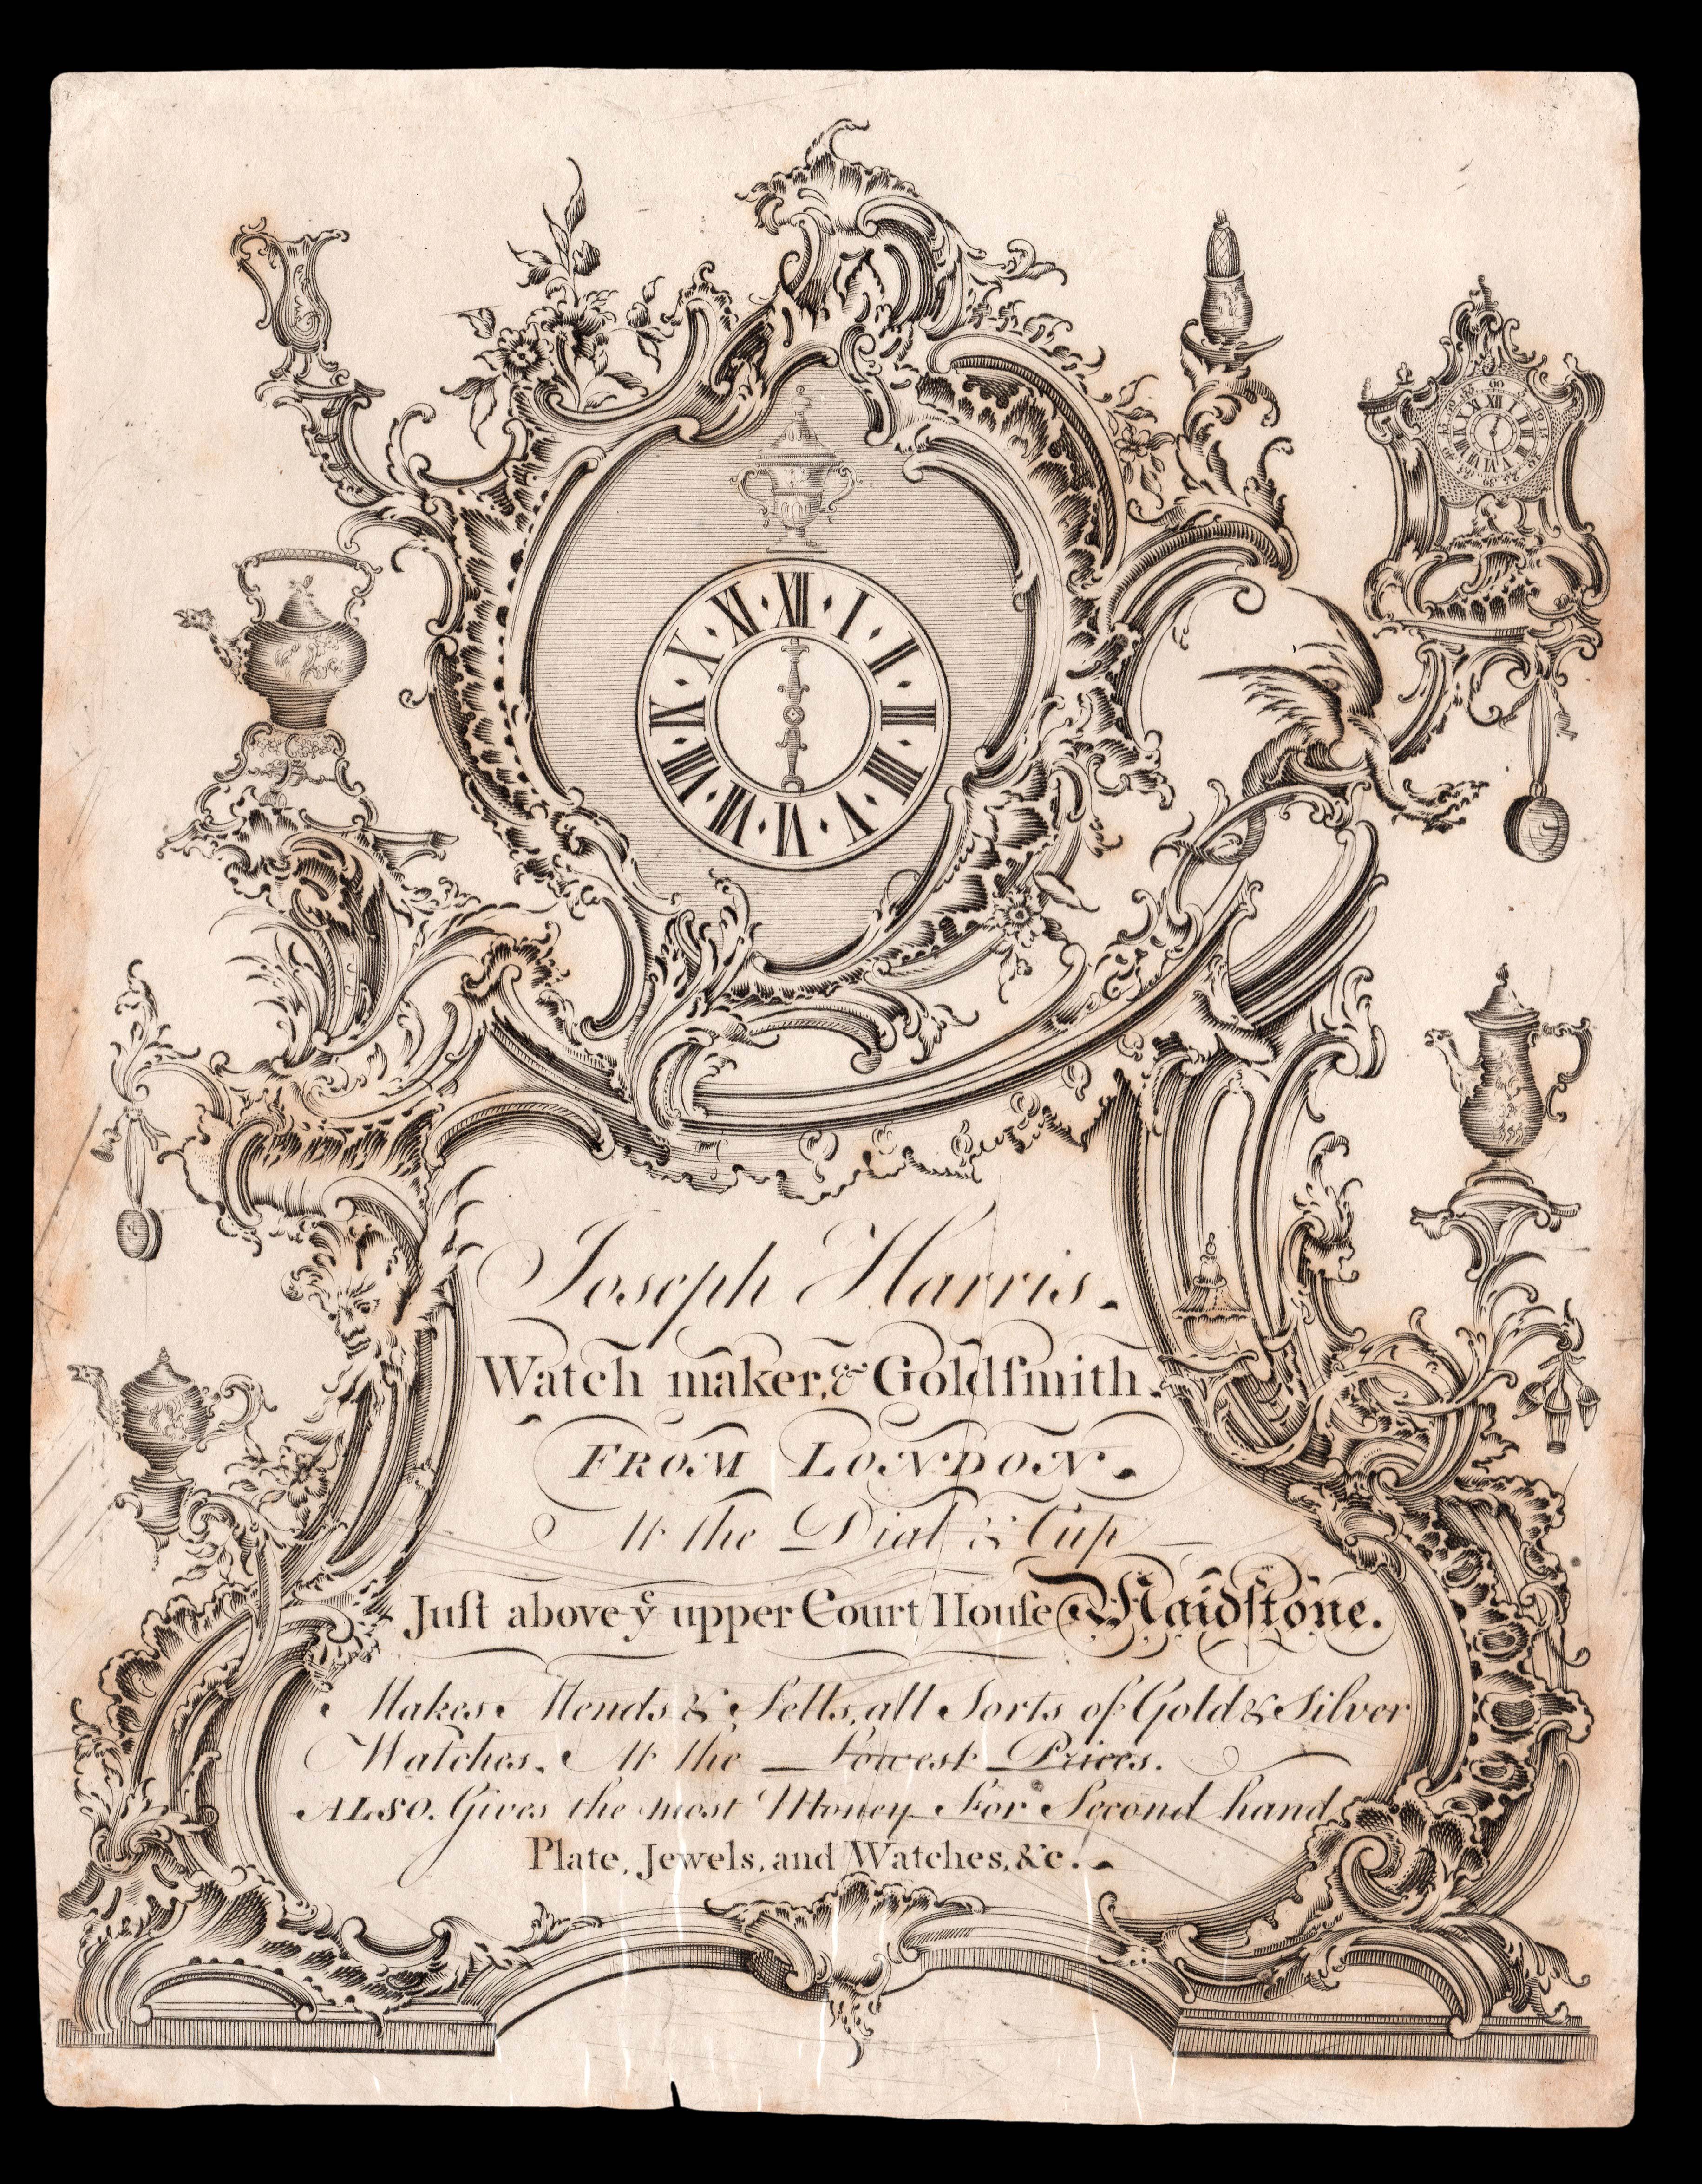 XII
I
II
III
IIII
V
VI
VII
VIII
IX
X
XI
Joseph Harris.
Watch maker, & Goldſmith.
FROM LONDON.
At the Dial & Cup
Juſt above yͤ upper Court Houſe Maidſtone.
Makes Mends & Sells, all Sorts of Gold & Silver
Watches. At the Lowest Prices.
ALSO. Gives the most Money For Second hand
Plate, Jewels, and Watches, &c.